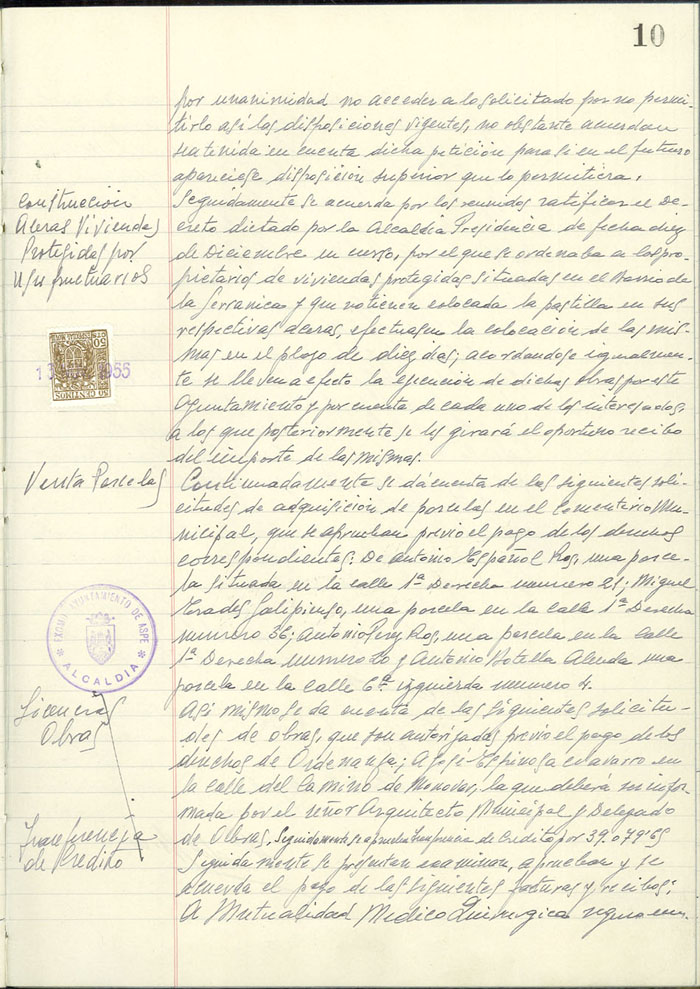 10
por unanimidad no acceder a lo solicitado por no permi-
tirlo así las disposiciones vigentes, no obstante acuerdan
sea tenida en cuenta dicha petición para si en el futuro
apareciese disposición superior que lo permitiera.
Construcción
Aceras Viviendas
Protegidas por
Usufructuarios
Seguidamente se acuerda por los reunidos ratificar el De-
creto dictado por la Alcaldía Presidencia de fecha diez
de Diciembre en curso, por el que se ordenaba a los pro-
pietarios de viviendas protegidas situadas en el Barrio de
la Serranica y que no tienen colocada la pastilla en sus
respectivas aceras, efectuasen la colocación de las mis-
mas en el plazo de diez dias; acordandose igualmen-
te se lleven a efecto la ejecución de dichas obras por este
Ayuntamiento y por cuenta de cada uno de los interesados,
a los que posteriormente se les girará el oportuno recibo
del importe de las mismas.
50 CENTIMOS
1955
Venta Parcelas
Continuadamente se dá cuenta de las siguientes soli-
citudes de adquisición de parcelas en el Cementerio Mu-
nicipal, que se aprueban previo el pago de los derechos
correspondientes: De Antonio Español Ros, una parce-
la situada en la calle 1ª Derecha numero 21; Miguel
Galipienso, una parcela en la calle 1ª Derecha
numero 36; Antonio Perez Ros, una parcela en la calle
1ª Derecha numero 20 y Antonio Botella Alenda una
parcela en la calle 6ª izquierda numero 4.
EXCMO. AYUNTAMIENTO DE ASPE
* ALCALDIA *
Licencias
Obras
Asi mismo se da cuenta de las siguientes solicitu-
des de obras, que son autorizadas previo el pago de los
derechos de Ordenanza; A José Espinosa Navarro en
la calle del Camino de Monovar, la que deberá ser infor-
mada por el señor Arquitecto Municipal y Delegado
de Obras. Seguidamente se aprueba transferencia de Credito por 39.079'65
Transferencia
de Credito
Seguidamente se presentan examinan, aprueban y se
acuerda el pago de las siguientes facturas y recibos:
A Mutualidad Medico Quirurgica